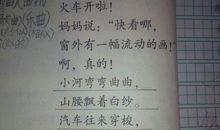 火车开啦！
妈妈说：“快看哪，
窗外有一幅流动的画！”
啊，真的！
小河弯弯曲曲，
山腰飘着白纱。
汽车往来穿梭，